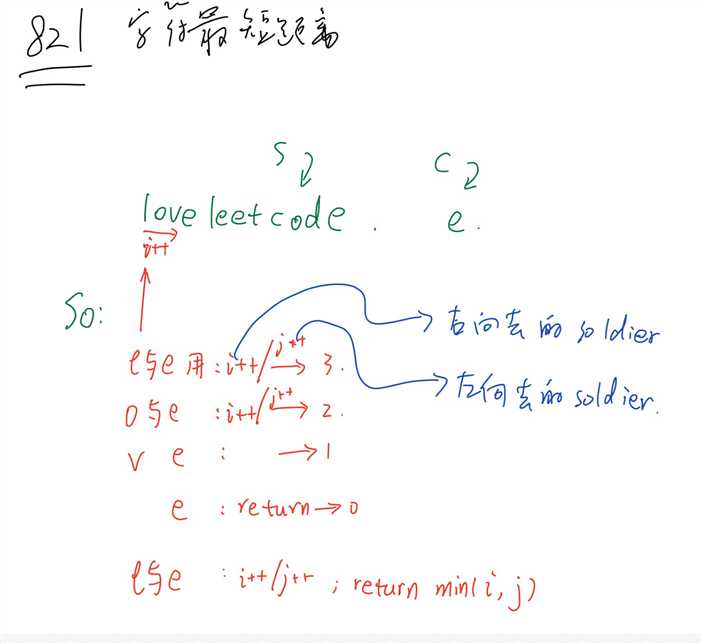 821 字符最短距离
S C
loveleetcode. e.
i++
So:
右向去的 soldier
l与e 用: i++/j++ → 3.
左向去的 soldier.
o与e : i++/j++ → 2.
v e : → 1
e : return → 0
l与e : i++/j++ ; return min(i, j)